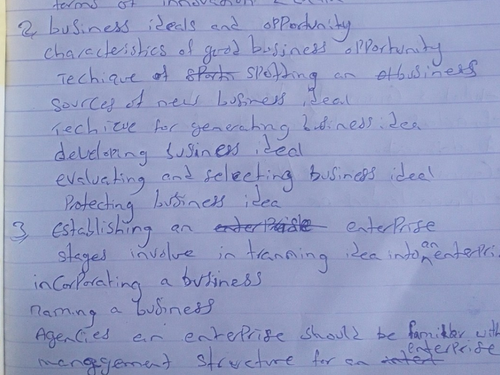 terms of innovation
2, business ideals and opportunity
characteristics of good business opportunity
Techique of spotting an business
sources of new business ideal
Techique for generating business idea
developing business ideal
evaluating and selecting business ideal
Protecting business idea
3, Establishing an enterprise enterprise
stages involve in tranning idea into an enterpri
incorporating a business
naming a business
Agencies an enterprise should be familier with
management structure for an enterprise